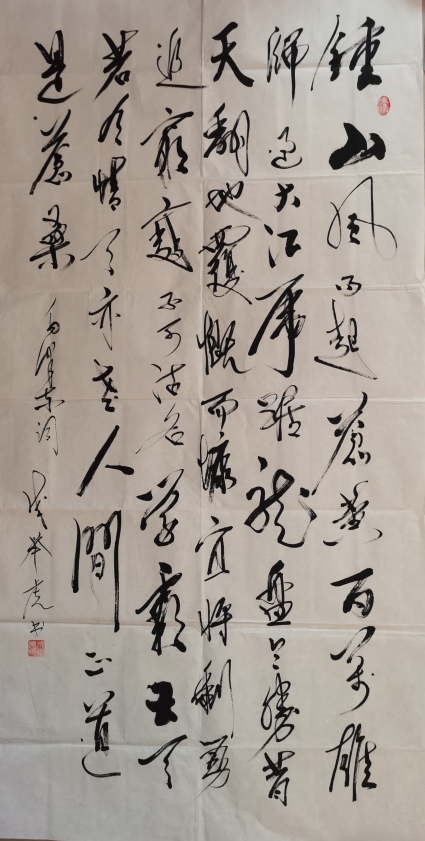 鍾山風雨起蒼黃百萬雄
師過大江虎踞龍盤今勝昔
天翻地覆慨而慷宜將剩勇
追窮寇不可沽名學霸王天
若有情天亦老人間正道
是蒼桑
毛澤東詞
虎书